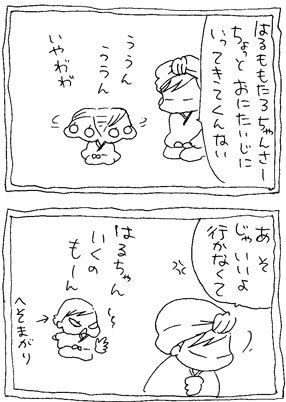 はるももたろちゃんさー
ちょっとおにたいじに
いってきてくんない
ううん
ううん
いやがが
あ そ
じゃいいよ
行かなくて
はるちゃん
いくの
もーん
へそまがり